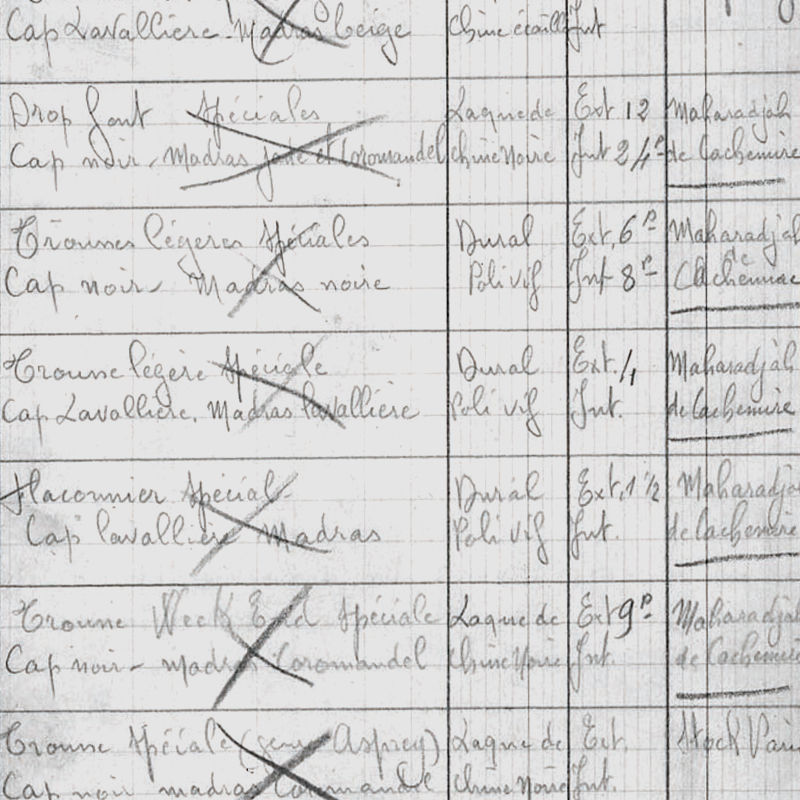 Cap Lavallière. Madras beige Chine écaille Int
Drop front Spéciales Laque de Ext 12 Maharadjah
Cap noir - Madras jade et Coromandel Chine Noire Int 24 de Cachemire
Trousses légères Spéciales Dural Ext. 6 Maharadjah
de
Cap noir - Madras noire Poli vif Int 8 Cachemire
Trousse légère Spéciale Dural Ext. Maharadjah
Cap Lavallière. Madras lavallière Poli vif Int. de Cachemire
Flaconnier Spécial Dural Ext. 1 ½ Maharadja
Cap lavallière Madras Poli vif Int. de Cachemire
Trousse Week End Spéciale Laque de Ext 9 Maharadjah
Cap noir - Madras Coromandel Chine Noire Int. de Cachemire
Trousse Spéciale (genre Asprey) Laque de Ext. Stock Paris
Cap noir madras Coromandel Chine Noire Int.